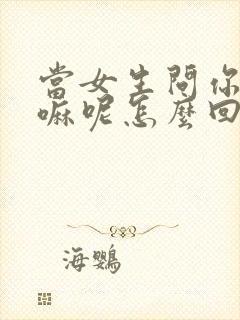 當女生問你
嘛呢怎麼回
海鸚